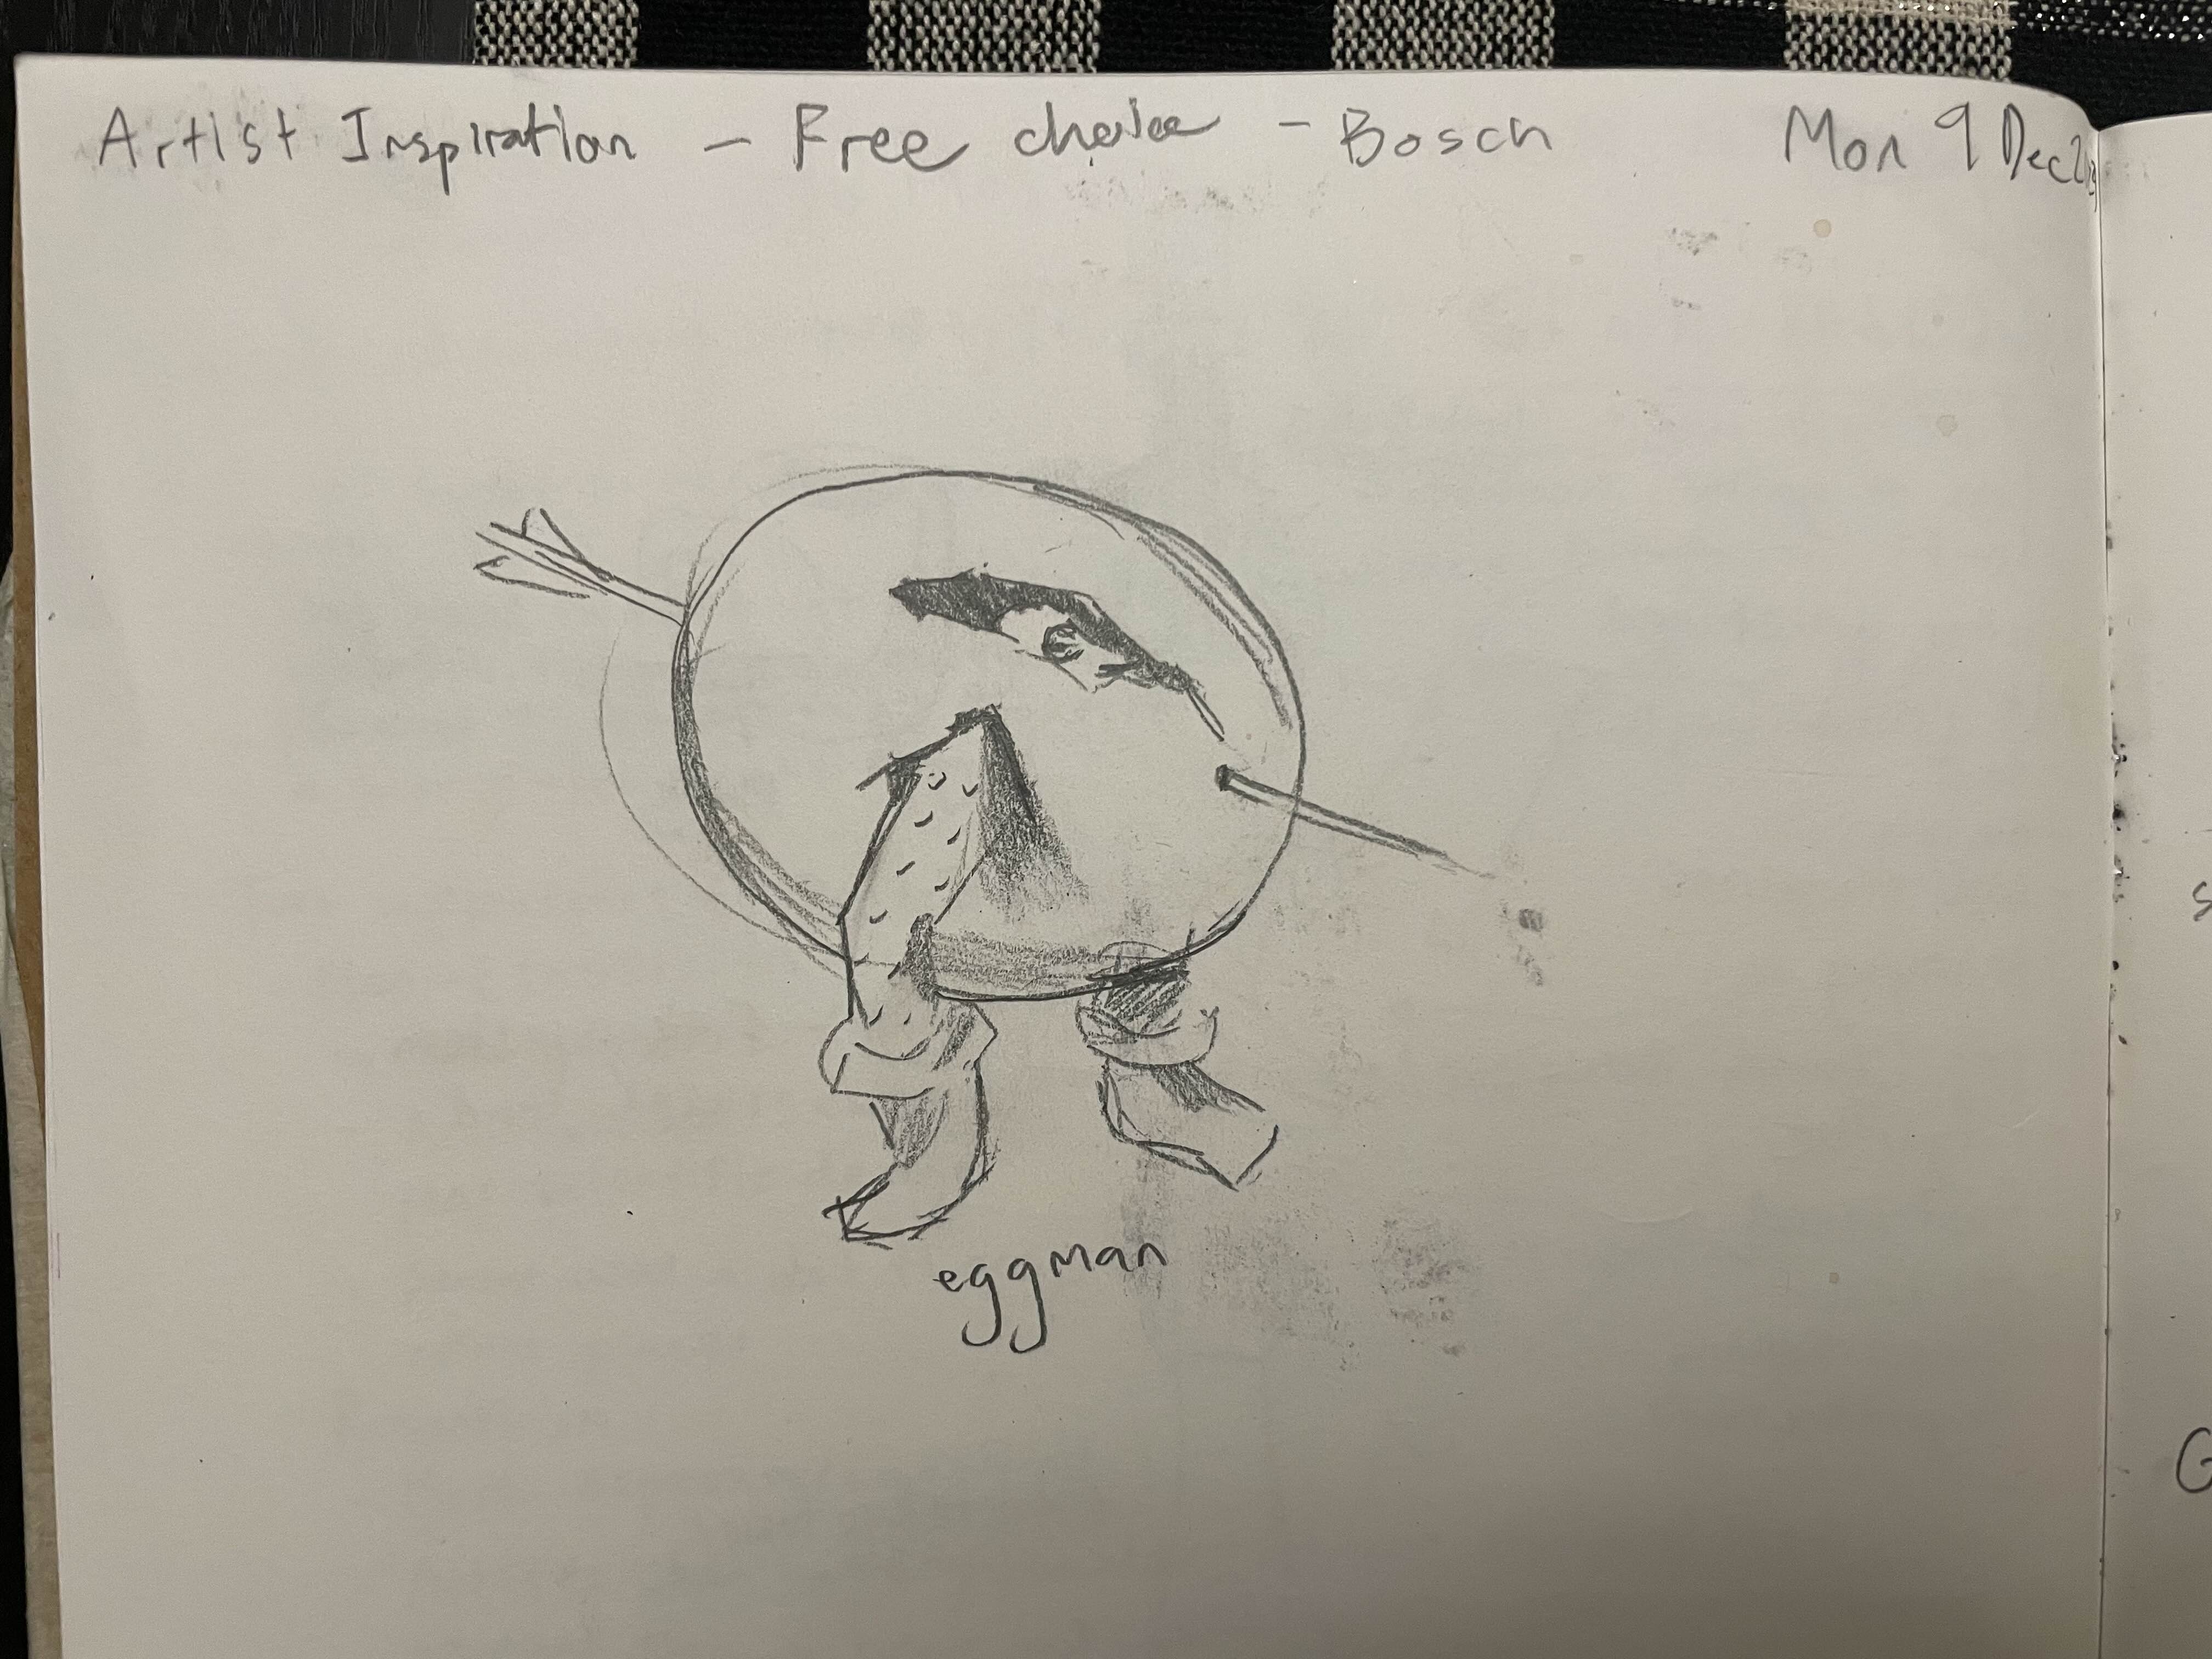 Artist Inspiration - Free choice - Bosch
Mon 9 Dec
eggman